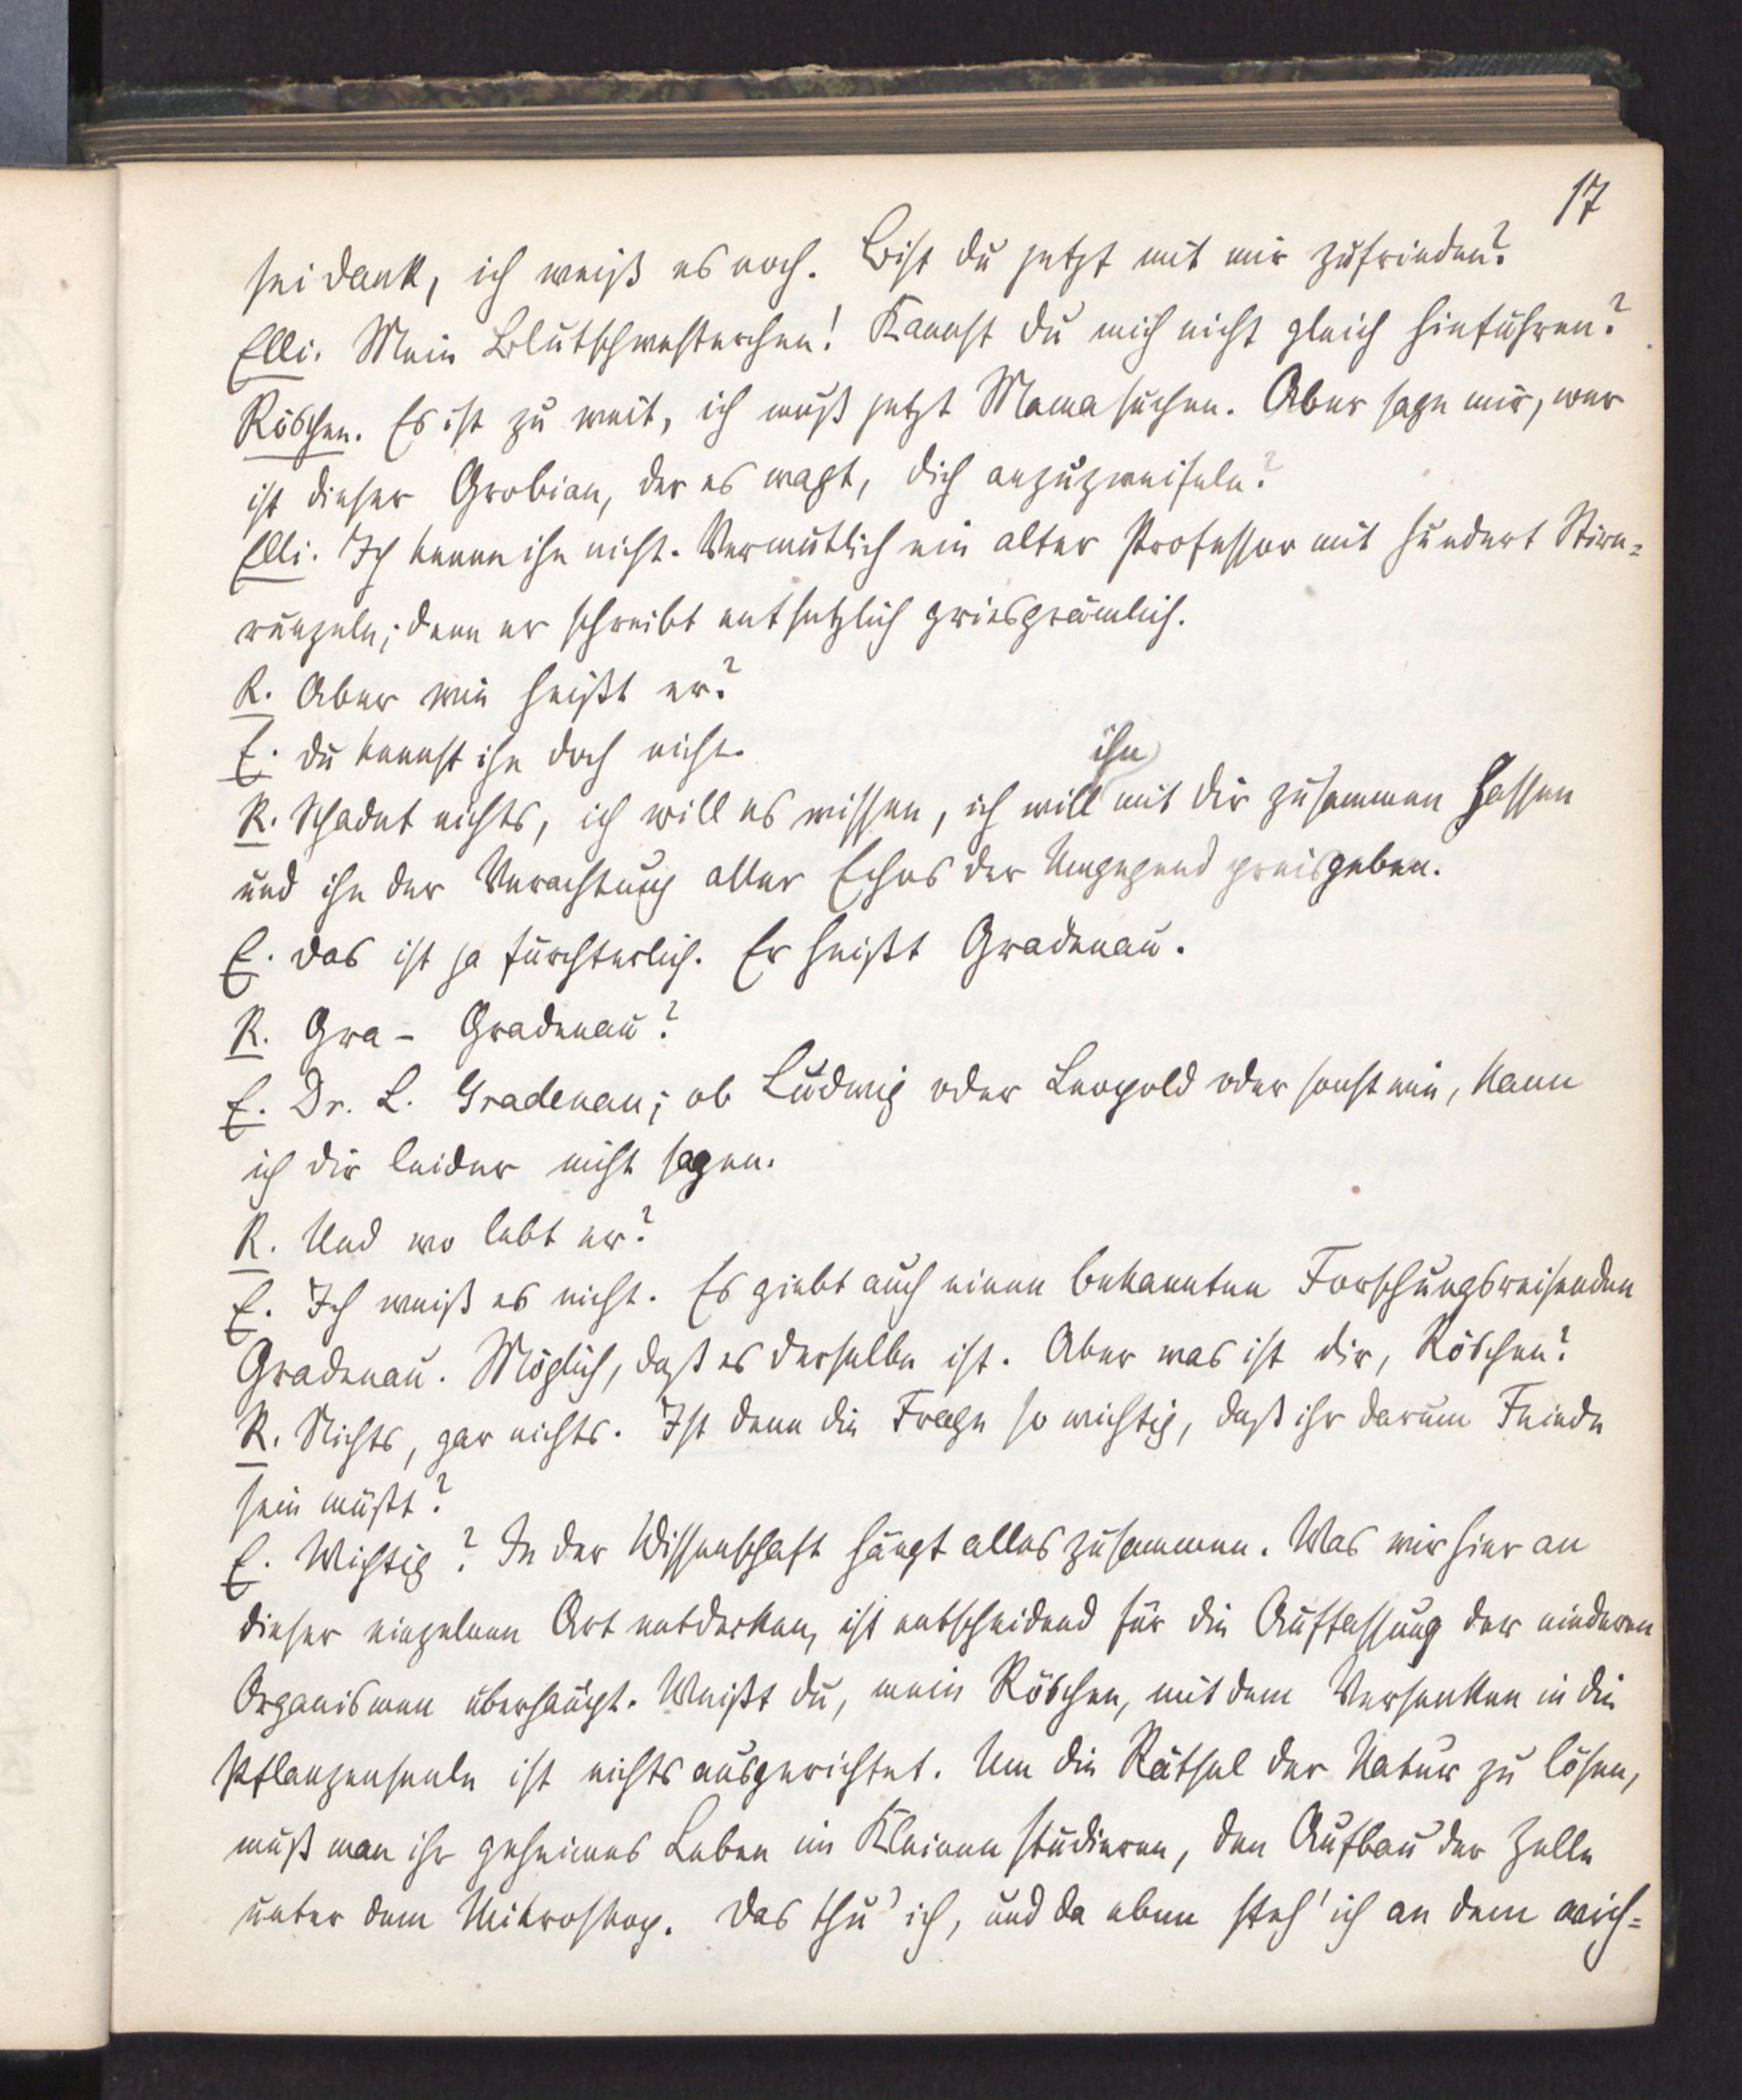 17
sei dank, ich weiß es noch. Bist du jetzt mit mir zufrieden?
Elli. Mein Blutschwesterchen! Kannst du mich nicht gleich hinführen?
Röschen. Es ist zu weit, ich muß jetzt Mama suchen. Aber sage mir, wer
ist dieser Grobian, der es wagt, dich anzuzweifeln?
Elli. Ich kenne ihn nicht. Vermutlich ein alter Professor mit hundert Stirn=
runzeln; denn er schreibt entsetzlich griesgrämlich.
R. Aber wie heißt er?
E. Du kennst ihn doch nicht.
ihn
R. Schadet nichts, ich will es wissen, ich will mit dir zusammen hassen
und ihn der Verachtung aller Echos der Umgegend preisgeben.
E. Das ist ja fürchterlich. Er heißt Gradenau.
R. Gra- Gradenau?
E. Dr. L. Gradenau; ob Ludwig oder Leopold oder sonst wie, kann
ich dir leider nicht sagen.
R. Und wo lebt er?
E. Ich weiß es nicht. Es giebt auch einen bekannten Forschungsreisenden
Gradenau. Möglich, daß es derselbe ist. Aber was ist dir, Röschen?
R. Nichts, gar nichts. Ist denn die Frage so wichtig, daß ihr darum Feinde
sein müßt?
E. Wichtig? In der Wissenschaft hängt alles zusammen. Was wir hier an
dieser einzelnen Art entdecken, ist entscheidend für die Auffassung der niederen
Organismen überhaupt. Weißt du, mein Röschen, mit dem Versenken in die
Pflanzenseele ist nichts ausgerichtet. Um die Rätsel der Natur zu lösen,
muß man ihr geheimes Leben im Kleinen studieren, den Aufbau der Zelle
unter dem Mikroskop. Das thu' ich, und da eben steh' ich an dem wich=